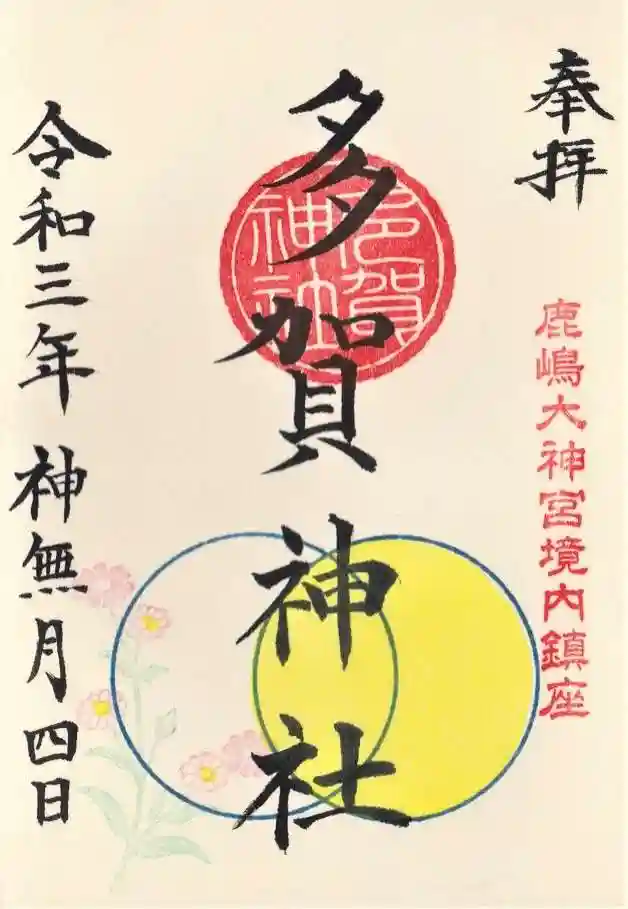 奉拝
鹿嶋大神宮境内鎮座
多賀神社
多賀神社
令和三年 神無月四日